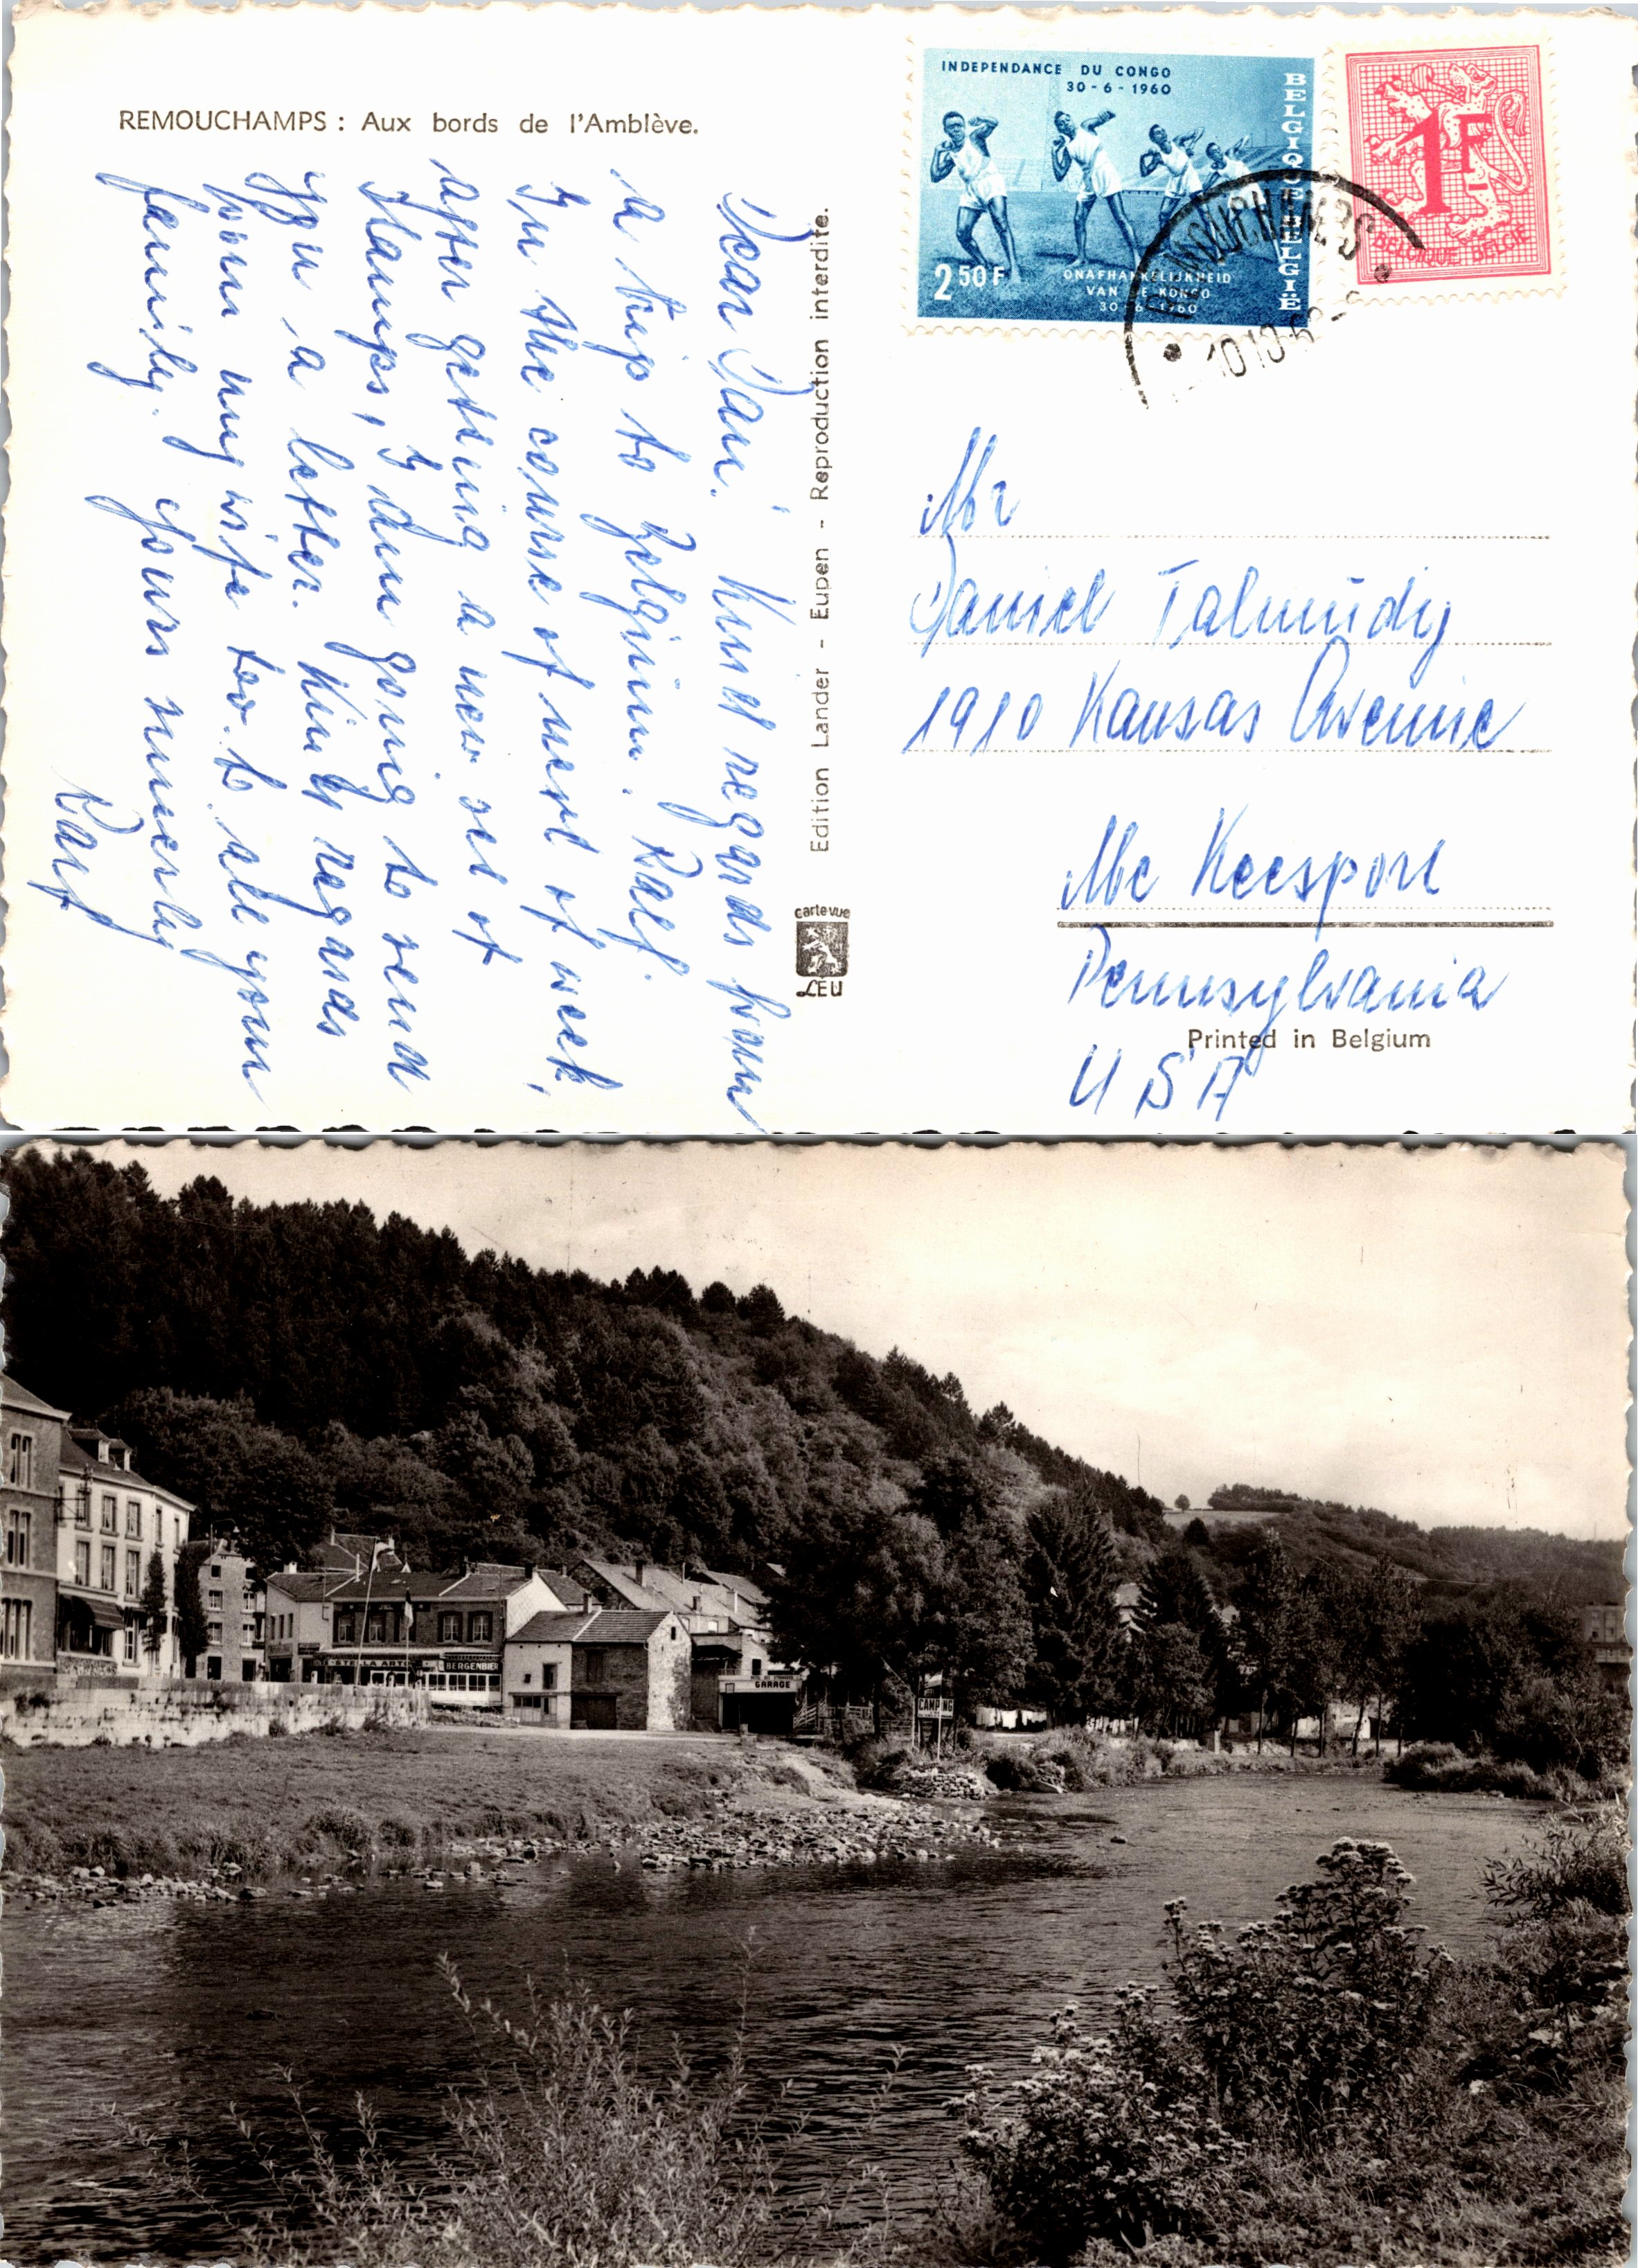 REMOUCHAMPS : Aux bords de l'Amblève.
Dear Dan! Kind regards from
a trip to Belgium. Ralf.
In the course of next of week,
after getting a new set of
stamps, I dum going to send
you a letter. Kind regards
from my wife too to all your
family. Yours sincerely
Ralf
Edition Lander - Eupen - Reproduction interdite.
carte vue
LEU
INDEPENDANCE DU CONGO
30-6-1960
BELGIQUE BELGIË
2 50 F
ONAFHANKELIJKHEID
VAN DE KONGO
30-6-1960
1F
BELGIQUE BELGIE
REMOUCHAMPS
Mr
Daniel Talmudij
1910 Kansas Avenue
Mc Keesport
Pennsylvania
Printed in Belgium
USA
STELLA ARTOIS
BERGENBIER
GARAGE
CAMPING